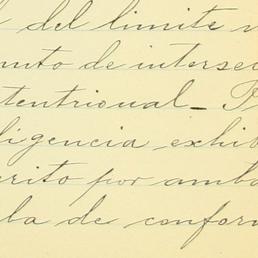 del limite
unto de intersec
tentrional_
ligencia exhib
crito por amba
ba de conform